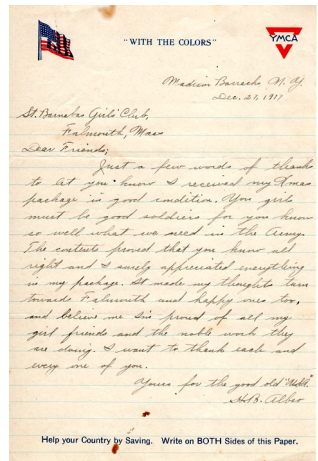 "WITH THE COLORS"
YMCA
Madison Barracks N.Y.
Dec. 27, 1917
St. Barnabas Girls' Club,
Falmouth, Mass
Dear Friends;
Just a few words of thanks
to let you know I received my Xmas
package in good condition. You girls
must be good soldiers for you know
so well what we need in the Army.
The contents proved that you know all
right and I surely appreciated everything
in my package. It made my thoughts turn
towards Falmouth and happy ones too,
and believe me I'm proud of all my
girl friends and the noble work they
are doing. I want to thank each and
every one of you.
Yours for the good old
H.B. Albro
Help your Country by Saving. Write on BOTH Sides of this Paper.